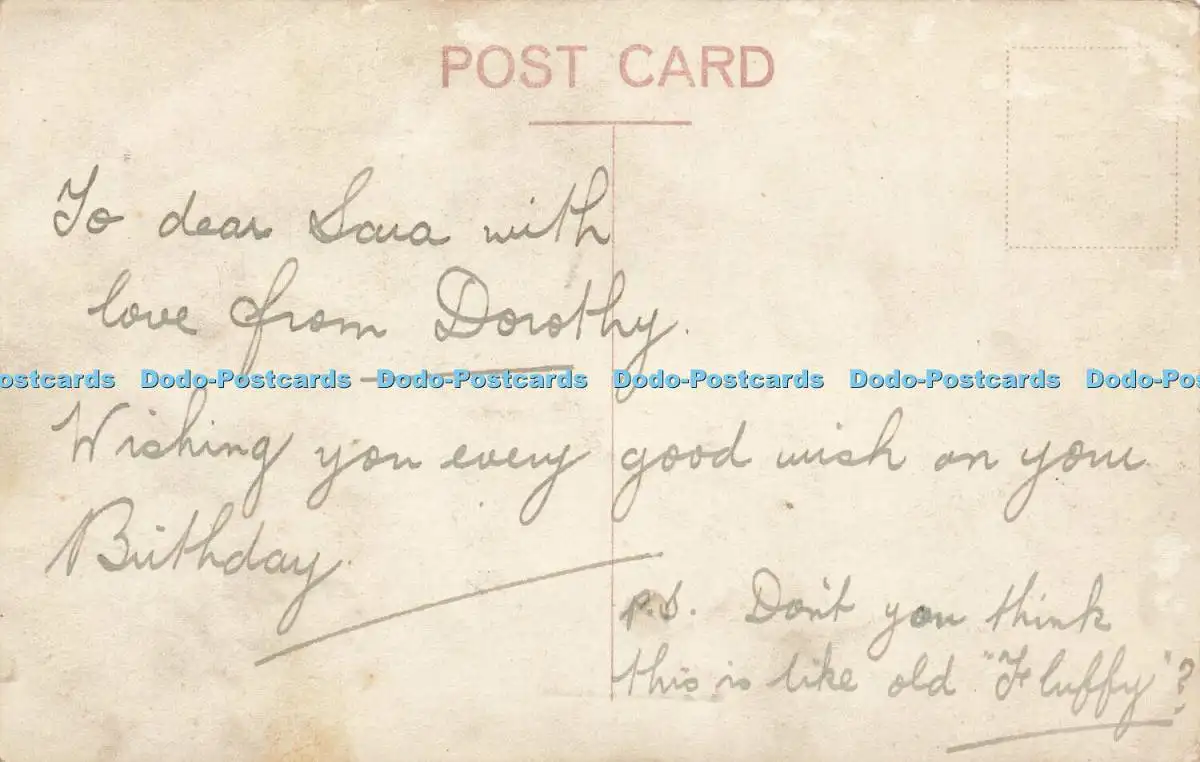 POST CARD
To dear Sara with
love from Dorothy.
ostcards Dodo-Postcards Dodo-Postcards Dodo-Postcards Dodo-Postcards Dodo-Pos
Wishing you every good wish on your
Birthday.
P.S. Don't you think
this is like old "Fluffy"?